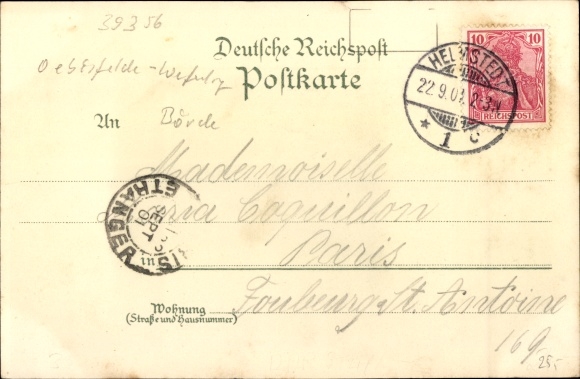 39356
Deutsche Reichspost
Postkarte
Oebisfelde-Weferling
Börde
10 10
REICHSPOST
HELMSTEDT
22.9.01. 2-3N
* 1 c
An
Mademoiselle
Maria Coquillon
Paris
ETRANGER
SEPT
01
Wohnung
(Straße und Hausnummer)
Foubourg St. Antoine
169
25,-